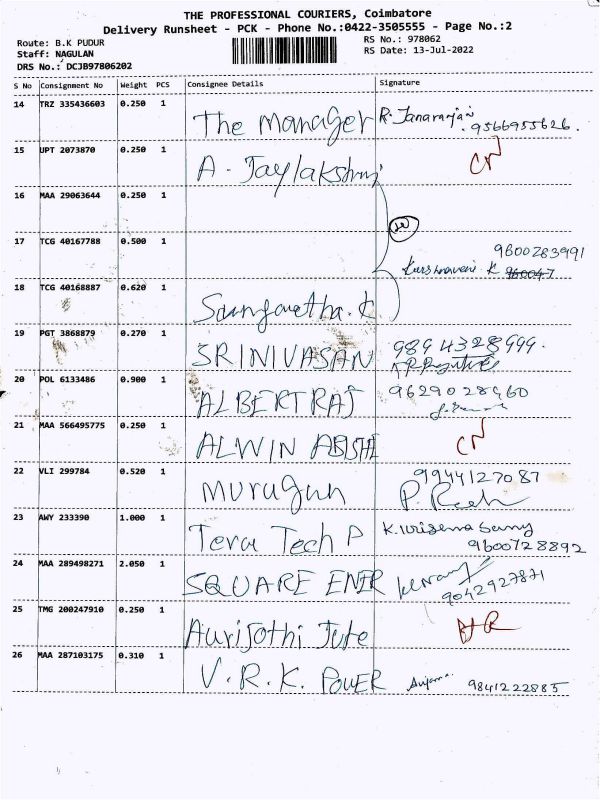 THE PROFESSIONAL COURIERS, Coimbatore
Delivery Runsheet - PCK - Phone No.:0422-3505555 - Page No.:2
Route: B.K PUDUR
RS No.: 978062
Staff: NAGULAN
RS Date: 13-Jul-2022
DRS No.: DCJB97806202
S No Consignment No Weight PCS Consignee Details Signature
14 TRZ 335436603 0.250 1 The Manager R. Janaranjan
9566955626.
15 UPT 2073870 0.250 1 A. Jaylakshmi CN
16 MAA 29063644 0.250 1
17 TCG 40167788 0.500 1
9600283991
K
18 TCG 40168887 0.620 1 Sangeetha.K
19 PGT 3868879 0.270 1 SRINIVASAN 9894328999.
20 POL 6133486 0.900 1 ALBERT RAJ 9629028960
21 MAA 566495775 0.250 1 ALWIN ABISHE CN
22 VLI 299784 0.520 1 Murugan 9944127087
P.
23 AWY 233390 1.000 1 Tera Tech P K.
9600728892
24 MAA 289498271 2.050 1 SQUARE ENER
9042927871
25 TMG 200247910 0.250 1 Aurijothi Jute
26 MAA 287103175 0.310 1 V.R.K. POWER 9841222885